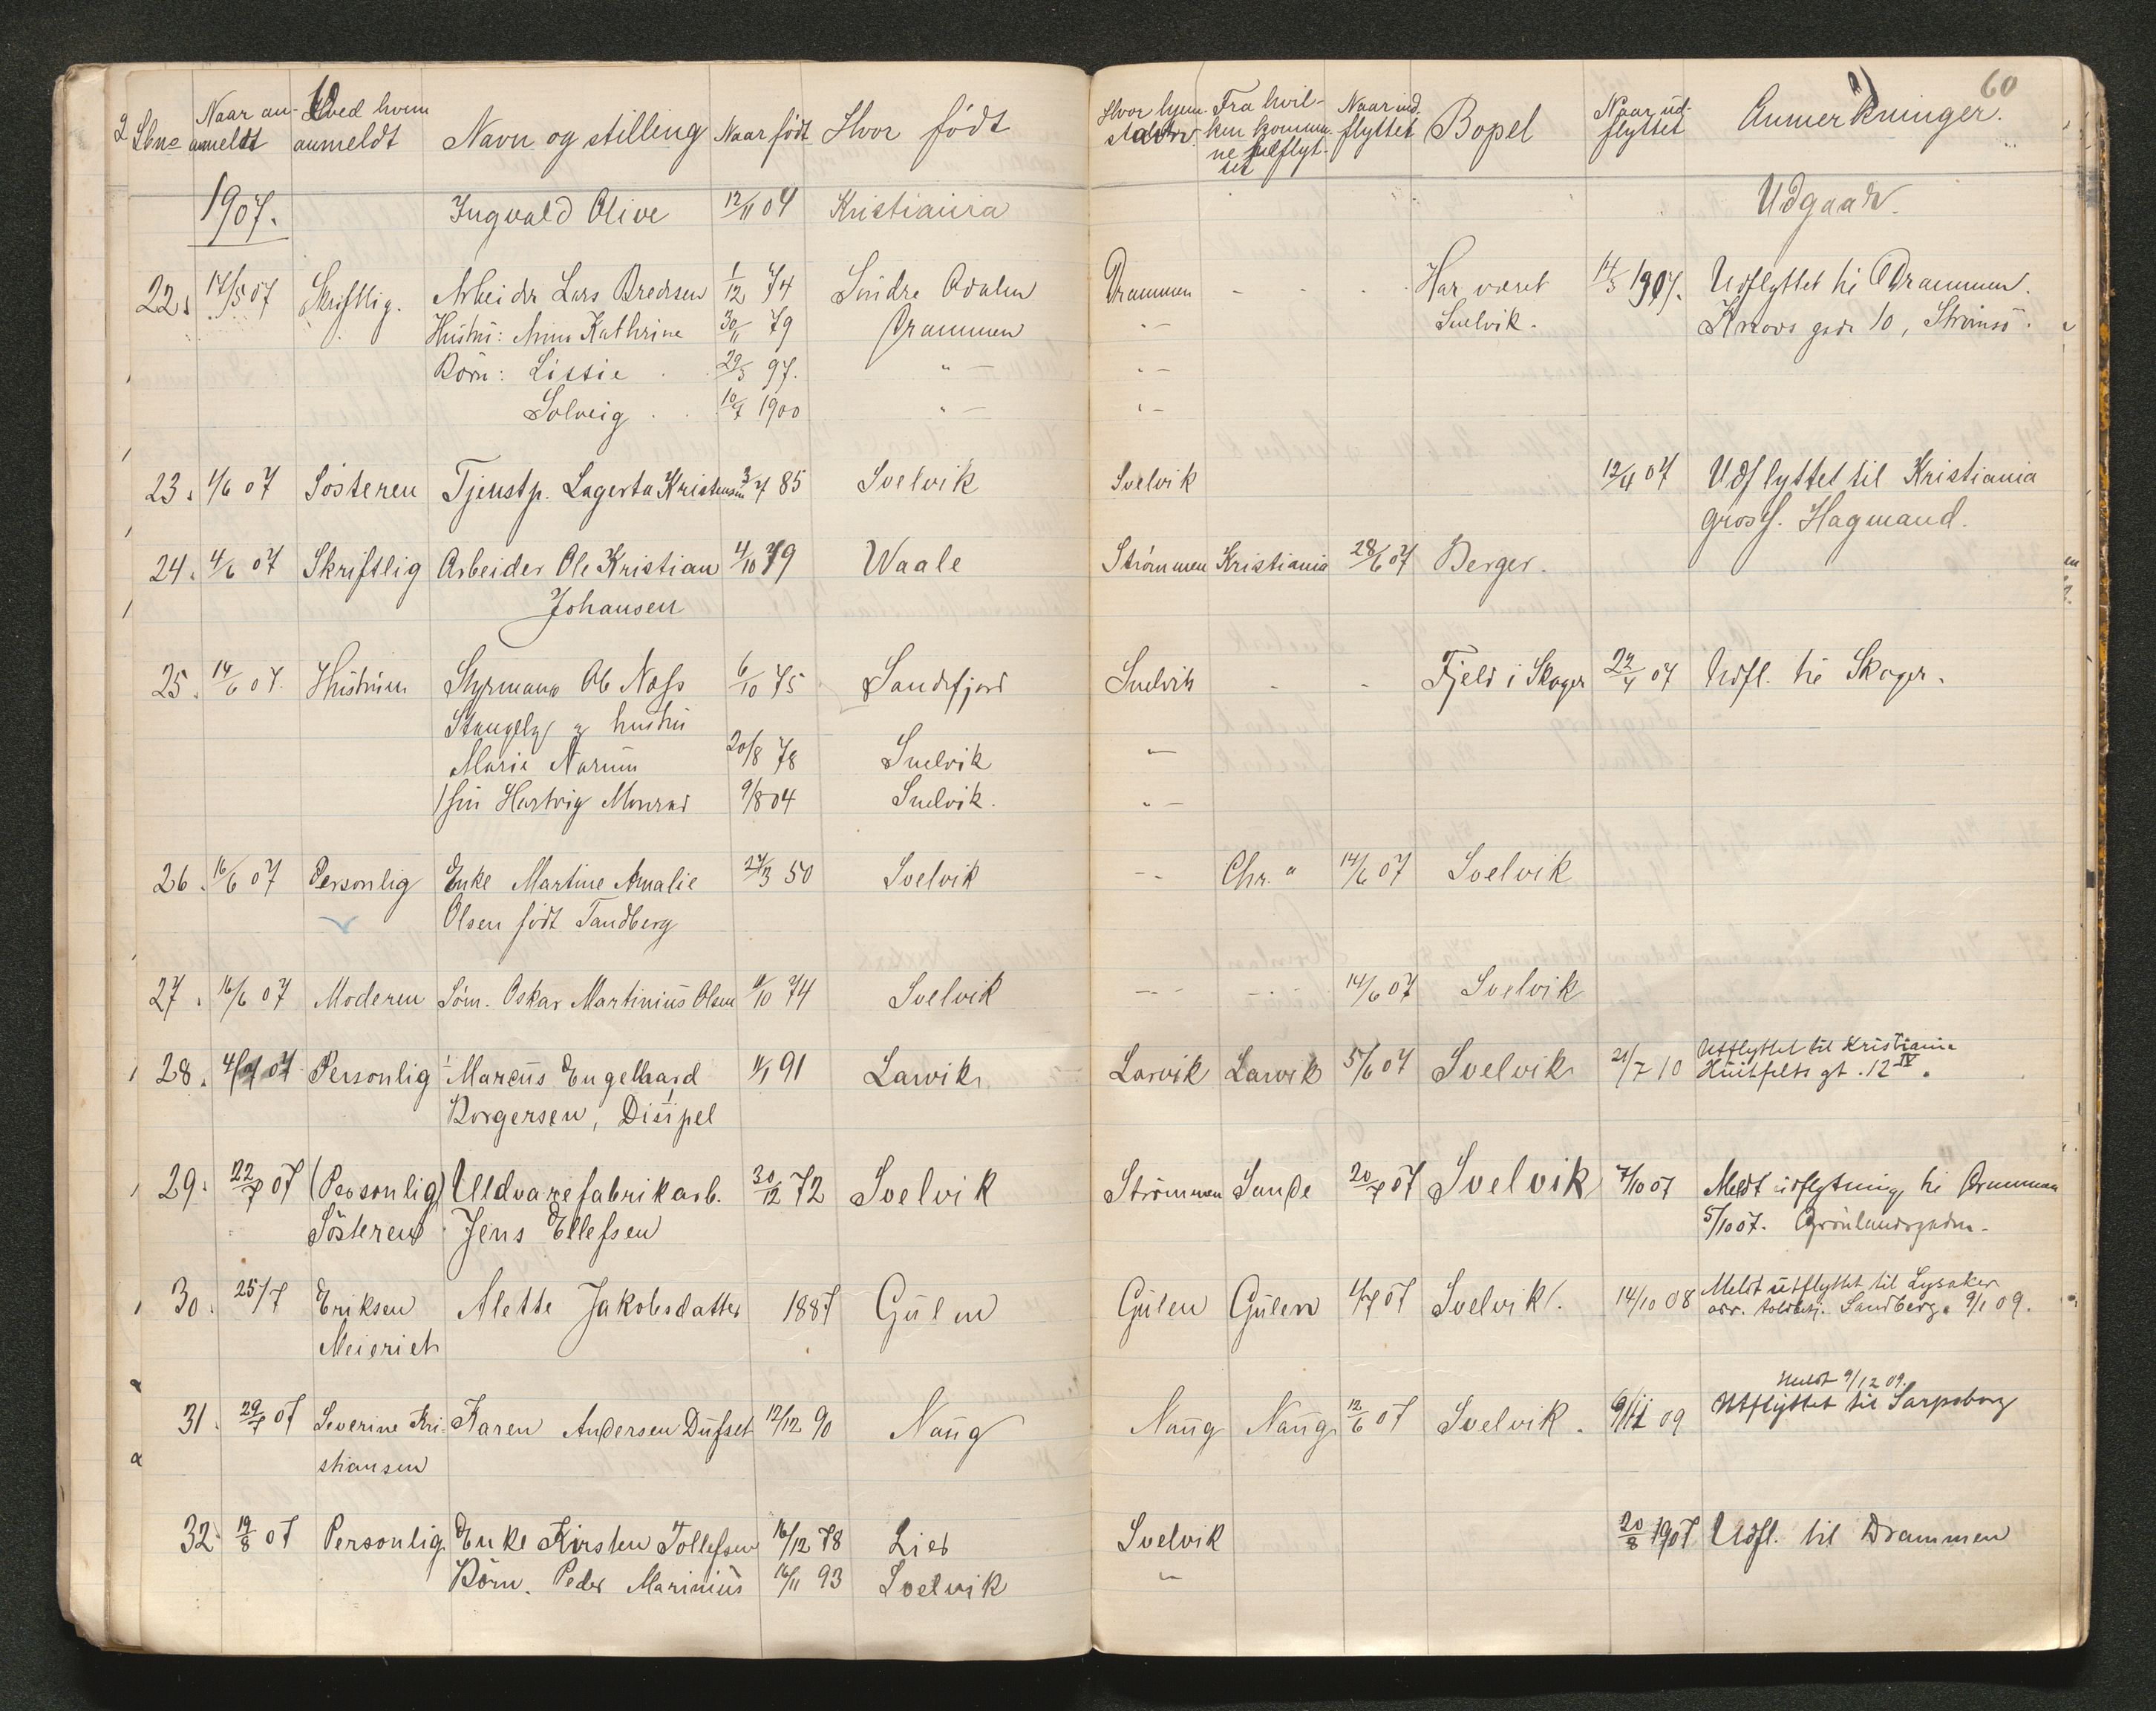 2 Lbno Naar an- meldt Hved hvem anmeldt Navn og stilling Naar født Hvor født Hvor hjem- Fra hvil- ken kommu- ne indflyt- tet Naar ind- flyttet Bopel Naar ud- flyttet Anmerkninger. 60
1907. Ingvald Olive 12/11 04 Kristiania Udgaar.
22. 17/5 07 Skriftlig. Arbeider Lars Bredesen 1/12 74 Søndre Odalen Drammen - - - Har været 14/5 1907. Udflyttet til Drammen.
Hustru: Anna Kathrine 30/11 79 Drammen " - Svelvik. gade 10, Strømsö.
Börn: Lissie 29/5 97. " - " -
Solveig 10/7 1900 " - " -
23. 1/6 07 Sösteren Tjenstp. Lagerta Kristensen 3/7 85 Svelvik Svelvik 12/4 07 Udflyttet til Kristiania
gross. Hagmand.
24. 4/6 07 Skriftlig Arbeider Ole Kristian 4/10 79 Waale Strömmen Kristiania 28/6 07 Berger.
Johansen
25. 14/6 07. Hustruen Styrmand Ole Næss 6/10 75 Sandefjord Svelvik - - Fjeld i Skoger 22/4 07 Udfl. til Skoger.
hustru
Marie Narum 20/8 78 Svelvik "
sön Hartvig Monrad 9/8 04 Svelvik. " -
26. 16/6 07 Personlig Enke Martine Amalie 27/3 50 Svelvik - - Chr. a 14/6 07 Svelvik
Olsen födt Tandberg
27. 16/6 07 Moderen Söm. Oskar Martinius Olsen 11/10 74 Svelvik - - - - 14/6 07 Svelvik
28. 4/7 07 Personlig Marcus Engelhard 11/1 91 Larvik Larvik Larvik 5/6 07 Svelvik 21/7 10 Utflyttet til Kristiania
Borgersen, Disipel Huitfelts gt. 12 IV.
29. 22/7 07 (Personlig) Uldvarefabrikarb. 30/12 72 Svelvik Strömmen Sande 20/7 07 Svelvik 7/10 07 Meldt udflytning til Drammen
Sösteren Jens Ellefsen 5/10 07. Grönlandsgaden.
30. 25/7 Eriksen Alette Jakobsdatter 1887 Gülen Gülen Gülen 1/7 07 Svelvik. 14/10 08 Meldt utflyttet til Lysaker
Meieriet adr. toldbetj. Sandberg. 9/1 09.
Meldt 9/12 09.
31. 29/7 07 Severine Kri- Karen Andersen Dufset 12/12 90 Nang Nang Nang 12/6 07 Svelvik. 9/11 09 Utflyttet til Sarpsborg
stiansen
32. 19/8 07 Personlig. Enke Kirsten Tollefsen 16/12 78 Lier Svelvik 20/8 1907 Udfl. til Drammen
Börn. Peder Marinius 16/11 93 Svelvik "